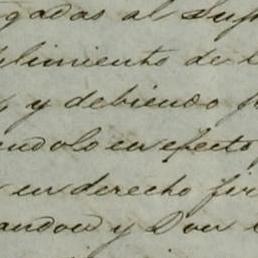 gadas al Sup
plimiento de l
y debiendo
endolo en efecto
en derecho fir
andon y Don